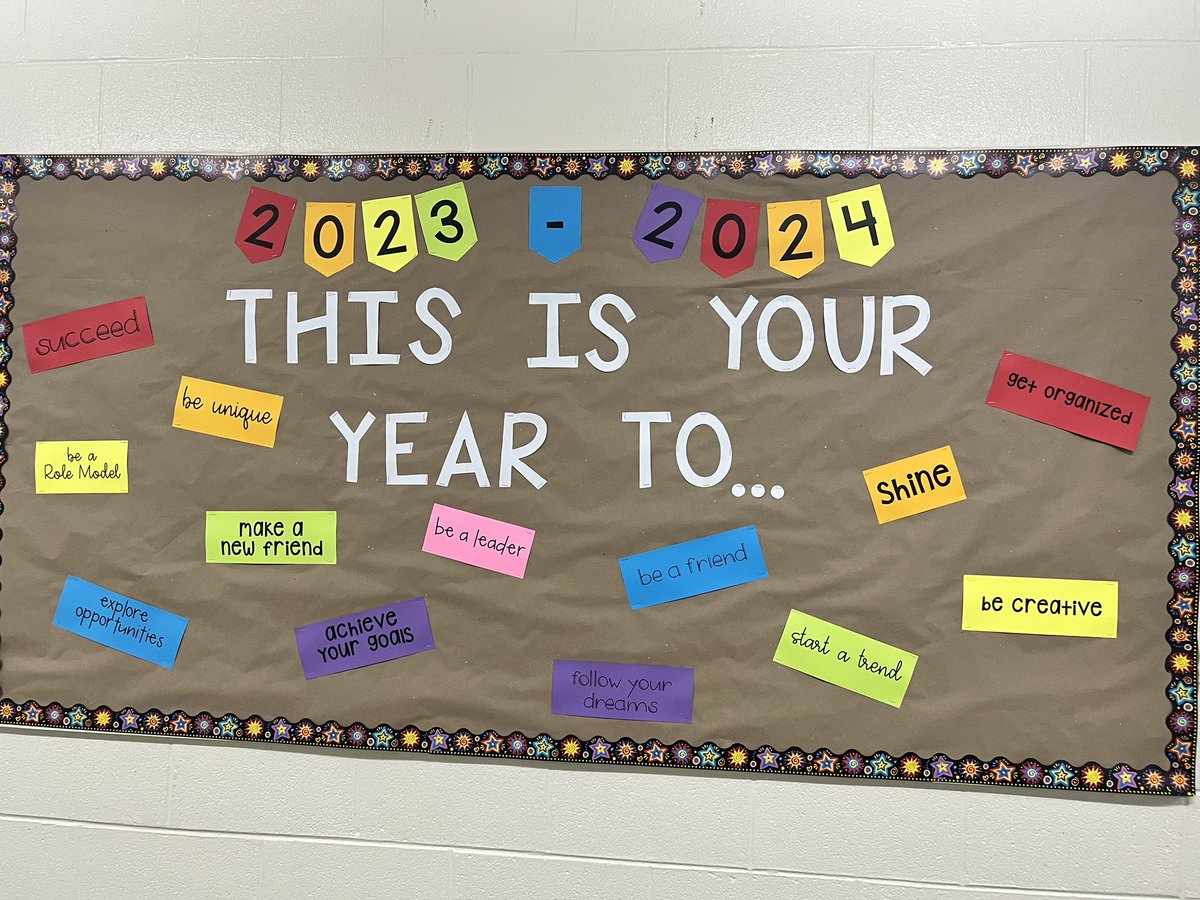 2023 - 2024
THIS IS YOUR
YEAR TO...
succeed
be unique
get organized
be a
Role Model
shine
make a
new friend
be a leader
be a friend
explore
opportunities
achieve
your goals
be creative
start a trend
follow your
dreams